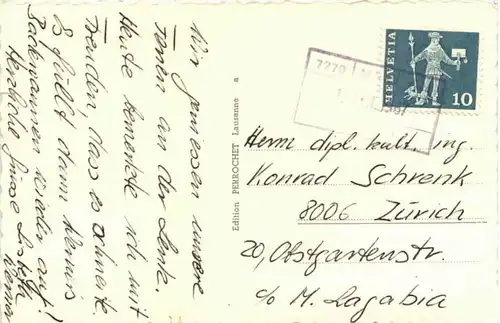 Wir geniessen unsere
Ferien an der Lenk.
Heute bemerkte ich mit
Freuden, dass es schneite.
Es füllt dann Werners
Badewannen wieder auf!
Herzliche Grüsse
Werner
Edition PERROCHET Lausanne a
HELVETIA
10
7270
Herrn dipl. kult. ing.
Konrad Schrenk
8006 Zürich
20, Obstgartenstr.
c/o M. Lagabia